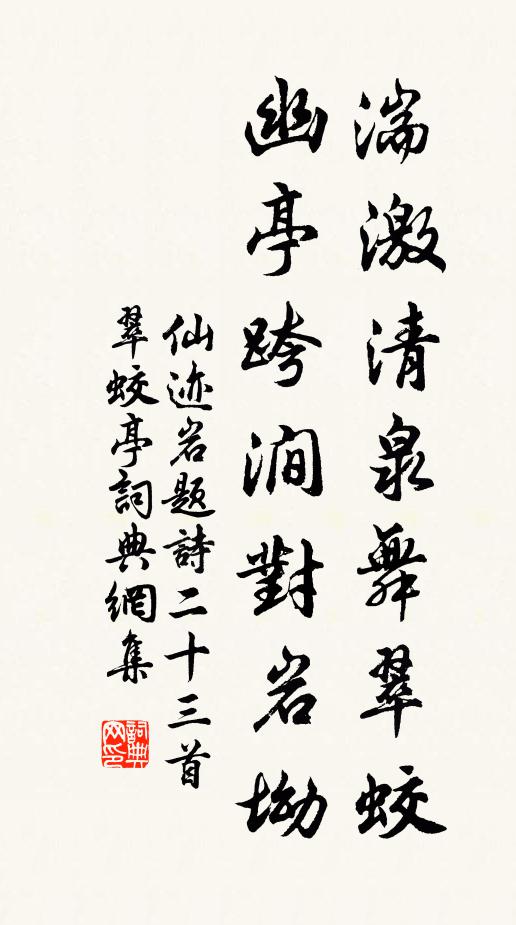 湍激清泉舞翠蛟
幽亭跨澗對岩坳
仙迹岩題詩二十三首
翠蛟亭詞典網集
詞典
网印